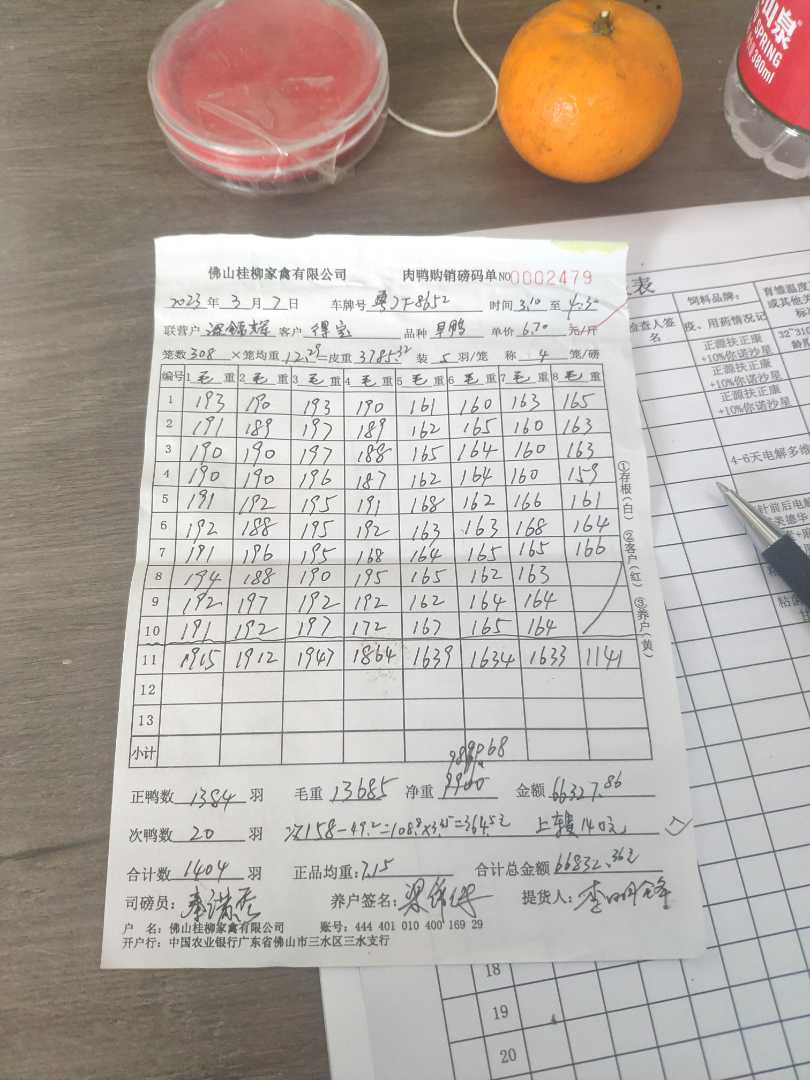 山泉
SPRING
380ml
佛山桂柳家禽有限公司 肉鸭购销磅码单 NO0002479
2023年3月7日 车牌号 粤 8652 时间 3.10 至 4.30
联营户 客户 得宝 品种 旱鸭 单价 6.70 元/斤
笼数 308 ×笼均重 12.29=皮重 3785.32 装 5 羽/笼 称 4 笼/磅
编号 1 毛 重 2 毛 重 3 毛 重 4 毛 重 5 毛 重 6 毛 重 7 毛 重 8 毛 重
1 193 190 193 190 161 160 163 165
2 191 189 197 189 162 165 160 163
3 190 190 197 188 165 164 160 163
4 190 190 196 187 162 164 160 159
5 191 192 195 191 168 162 166 161
6 192 188 195 192 163 163 168 164
7 191 196 195 168 164 165 165 166
8 194 188 190 195 165 162 163
9 192 197 192 192 162 164 164
10 191 192 197 172 167 165 164
11 1915 1912 1947 1864 1639 1634 1633 1141
12
13
小计
①存根(白) ②客户(红) ③养户(黄)
正鸭数 1384 羽 毛重 13685 净重 金额 66327.86
次鸭数 20 羽 次158-49.2=108.8×3.35=364.5元 上 140元
合计数 1404 羽 正品均重: 7.15 合计总金额 66832.36元
司磅员: 养户签名: 提货人: 李明锋
户 名: 佛山桂柳家禽有限公司 账号: 444 401 010 400 169 29
开户行: 中国农业银行广东省佛山市三水区三水支行
表
检查人签名
饲料品牌:
疫、用药情况记
育雏温度
或其他关
标准
正源扶正康
+10%你诺沙星
正源扶正康
+10%你诺沙星
正源扶正康
+10%你诺沙星
4-6天电解多维
针前后电解
18
19
20